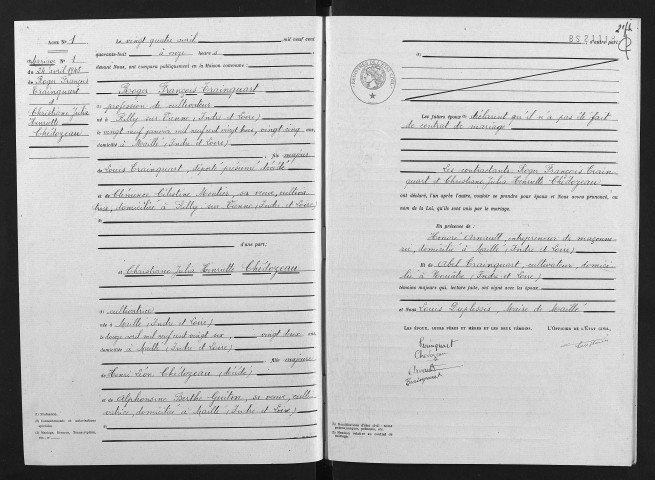 Acte N° 1
Mariage N° 1
du 24 avril 1948
de Roger François
Crainquart
et
Christiane Julia
Henriette
Chédozeau
Le vingt quatre avril mil neuf cent
quarante-huit à onze heures
devant Nous, ont comparu publiquement en la Maison commune :
Roger François Crainquart
profession de cultivateur
né à Rilly sur Vienne (Indre et Loire)
le vingt neuf janvier mil neuf cent vingt trois, vingt cinq ans,
domicilié à Maillé (Indre et Loire)
fils majeur
de Louis Crainquart, décédé
et de Clémence Célestine Montier, sa veuve, cultiva
trice, domiciliée à Rilly sur Vienne (Indre et Loire)
d'une part;
et Christiane Julia Henriette Chédozeau
cultivatrice
née à Maillé (Indre et Loire)
le douze avril mil neuf cent vingt six, vingt deux ans,
domiciliée à Maillé (Indre et Loire)
fille majeure
de Henri Léon Chédozeau (décédé)
et de Alphonsine Berthe Guiton, sa veuve, culti
vatrice, domiciliée à Maillé (Indre et Loire)
d'autre part;
Les futurs époux déclarent qu'il n'a pas été fait
de contrat de mariage
Les contractants Roger François Crain
quart et Christiane Julia Henriette Chédozeau
ont déclaré, l'un après l'autre, vouloir se prendre pour époux et Nous avons prononcé, au
nom de la Loi, qu'ils sont unis par le mariage.
En présence de :
Honoré Arnault, entrepreneur de maçonne
rie, domicilié à Maillé (Indre et Loire)
Et de Abel Crainquart, cultivateur, domici
lié à Nouâtre (Indre et Loire)
témoins majeurs qui, lecture faite, ont signé avec les époux
et Nous Louis Duplessis, Maire de Maillé
Les époux, leurs pères et mères et les deux témoins,
L'Officier de l'État civil,
Crainquart
Chédozeau
Arnault
Crainquart